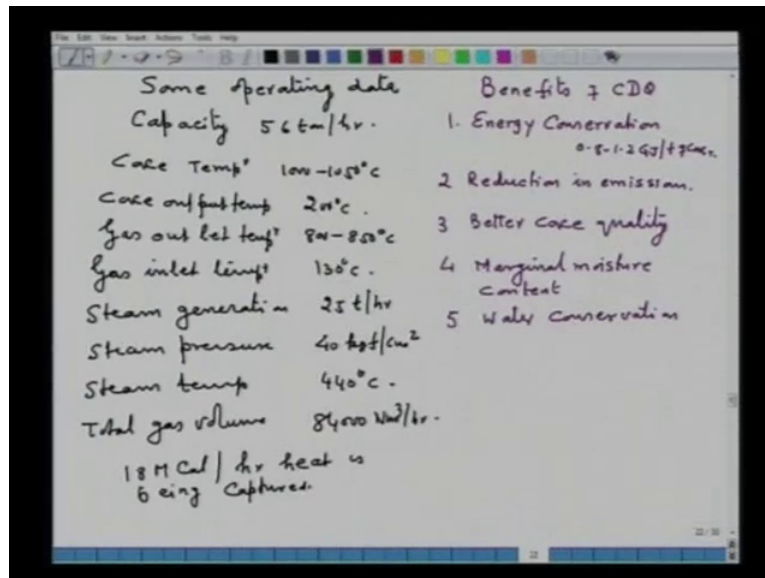 File Edit View Insert Actions Tools Help
Some operating data
Capacity 56 ton/hr.
Coke Temp' 1000-1050°C
Coke output temp 200°C.
Gas out let temp' 800-850°C
Gas inlet temp' 130°C.
Steam generation 25 t/hr
Steam pressure 40 kgf/cm²
Steam temp 440°C.
Total gas volume 84000 Nm³/hr.
18 M Cal / hr heat is
being captured.
Benefits of CDQ
1. Energy Conservation
0.8-1.2 GJ/t of coke
2 Reduction in emission.
3 Better coke quality
4 Marginal moisture
content
5 Water conservation
22/30
22